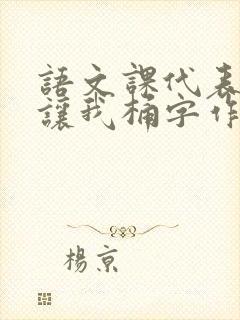 語文課代表
讓我桶字作
楊京